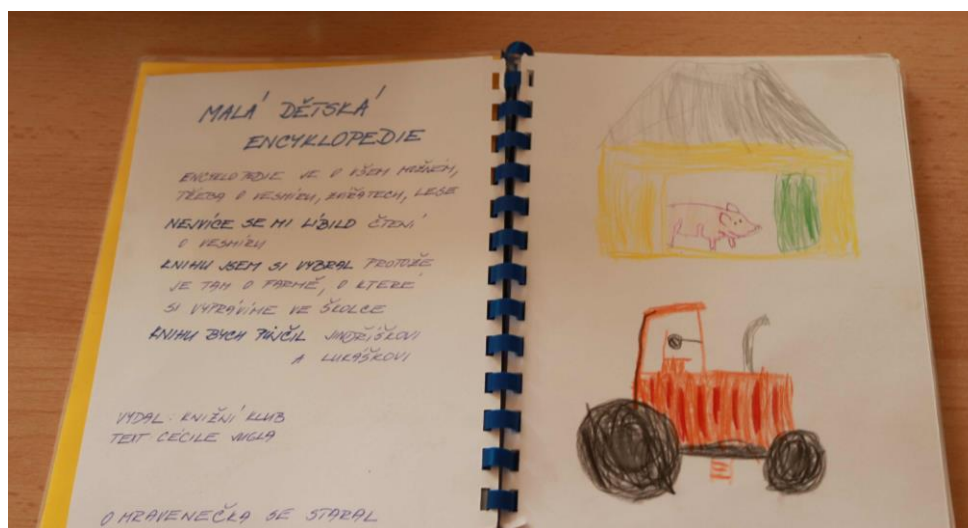 MALÁ DĚTSKÁ
ENCYKLOPEDIE
ENCYKLOPEDIE JE O VŠEM MOŽNÉM,
TŘEBA O VESMÍRU, ZVÍŘATECH, LESE
NEJVÍCE SE MI LÍBILO ČTENÍ
O VESMÍRU
KNIHU JSEM SI VYBRAL PROTOŽE
JE TAM O FARMĚ, O KTERÉ
SI VYPRÁVÍME VE ŠKOLCE
KNIHU BYCH PŮJČIL JINDŘÍŠKOVI
A LUKÁŠKOVI
VYDAL: KNIŽNÍ KLUB
TEXT CÉCILE JUGLA
O MRAVENEČKA SE STARAL